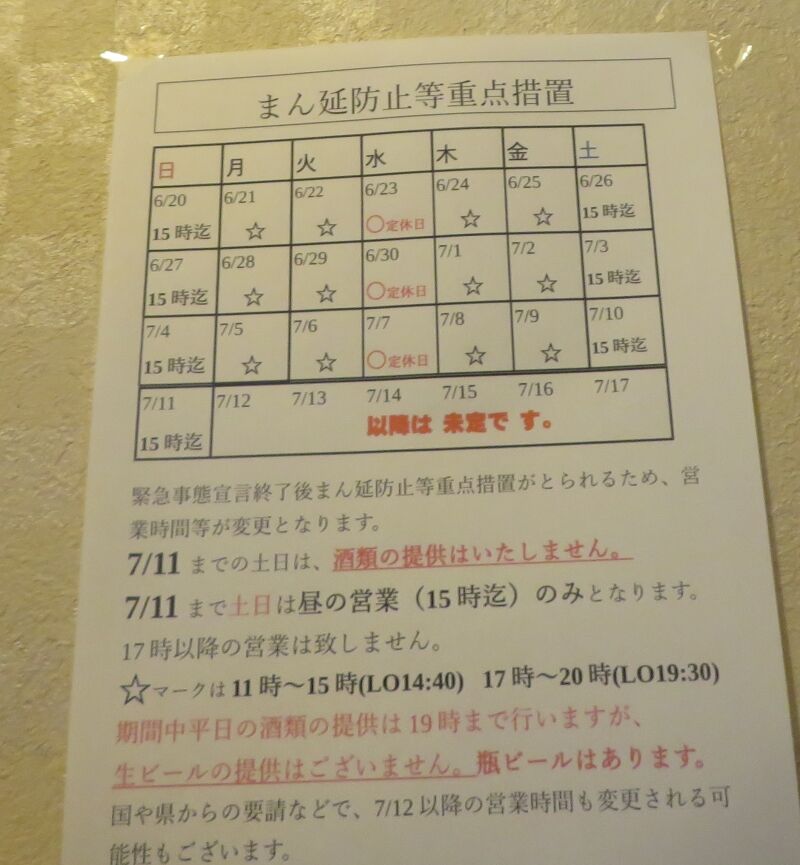 まん延防止等重点措置
日 月 火 水 木 金 土
6/20 6/21 6/22 6/23 6/24 6/25 6/26
15時迄 ☆ ☆ ○定休日 ☆ ☆ 15時迄
6/27 6/28 6/29 6/30 7/1 7/2 7/3
15時迄 ☆ ☆ ○定休日 ☆ ☆ 15時迄
7/4 7/5 7/6 7/7 7/8 7/9 7/10
15時迄 ☆ ☆ ○定休日 ☆ ☆ 15時迄
7/11 7/12 7/13 7/14 7/15 7/16 7/17
15時迄 以降は 未定で す。
緊急事態宣言終了後まん延防止等重点措置がとられるため、営
業時間等が変更となります。
7/11 までの土日は、酒類の提供はいたしません。
7/11 まで土日は昼の営業（15時迄）のみとなります。
17時以降の営業は致しません。
☆マークは 11時〜15時(LO14:40) 17時〜20時(LO19:30)
期間中平日の酒類の提供は19時まで行いますが、
生ビールの提供はございません。瓶ビールはあります。
国や県からの要請などで、7/12以降の営業時間も変更される可
能性もございます。